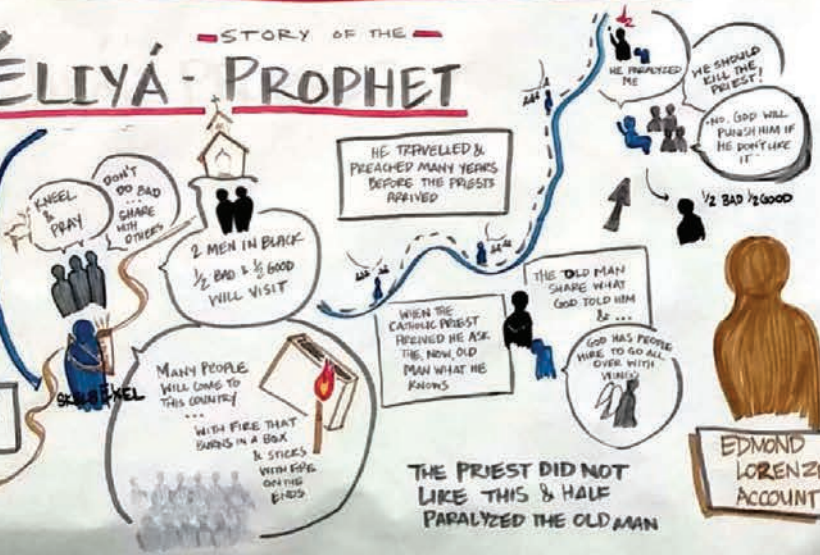 STORY OF THE
ÉLIYÁ - PROPHET
KNEEL
&
PRAY
DON'T
DO BAD
...
SHARE
WITH
OTHERS
2 MEN IN BLACK
1/2 BAD & 1/2 GOOD
WILL VISIT
MANY PEOPLE
WILL COME TO
THIS COUNTRY
...
WITH FIRE THAT
BURNS IN A BOX
& STICKS
WITH FIRE
ON THE
ENDS
HE TRAVELLED &
PREACHED MANY YEARS
BEFORE THE PRIESTS
ARRIVED
WHEN THE
CATHOLIC PRIEST
ARRIVED HE ASK
THE, NOW, OLD
MAN WHAT HE
KNOWS
THE OLD MAN
SHARE WHAT
GOD TOLD HIM
& ...
GOD HAS PEOPLE
HIRE TO GO ALL
OVER WITH
WINGS
THE PRIEST DID NOT
LIKE THIS & HALF
PARALYZED THE OLD MAN
HE PARALYZED
ME
WE SHOULD
KILL THE
PRIEST!
"NO, GOD WILL
PUNISH HIM IF
HE DON'T LIKE
IT"
1/2 BAD 1/2 GOOD
EDMOND
LORENZ
ACCOUNT